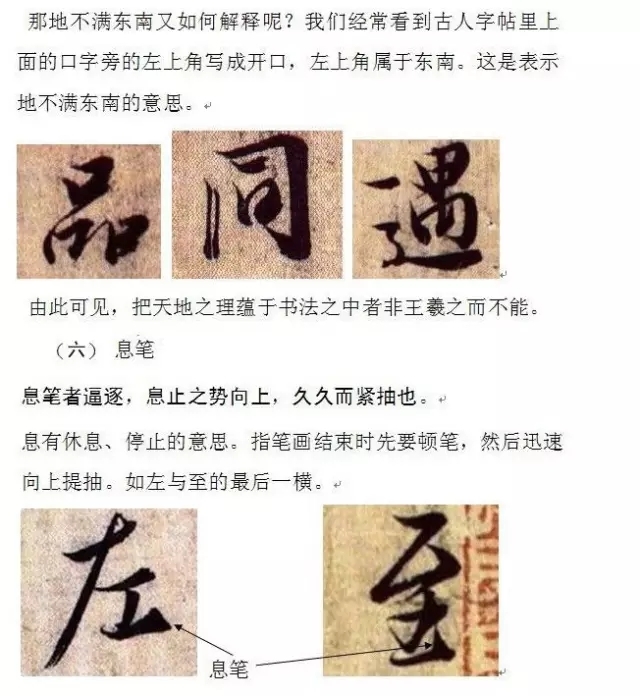 那地不满东南又如何解释呢？我们经常看到古人字帖里上
面的口字旁的左上角写成开口，左上角属于东南。这是表示
地不满东南的意思。
品 同 遇
由此可见，把天地之理蕴于书法之中者非王羲之而不能。
（六） 息笔
息笔者逼逐，息止之势向上，久久而紧抽也。
息有休息、停止的意思。指笔画结束时先要顿笔，然后迅速
向上提抽。如左与至的最后一横。
左 至
息笔